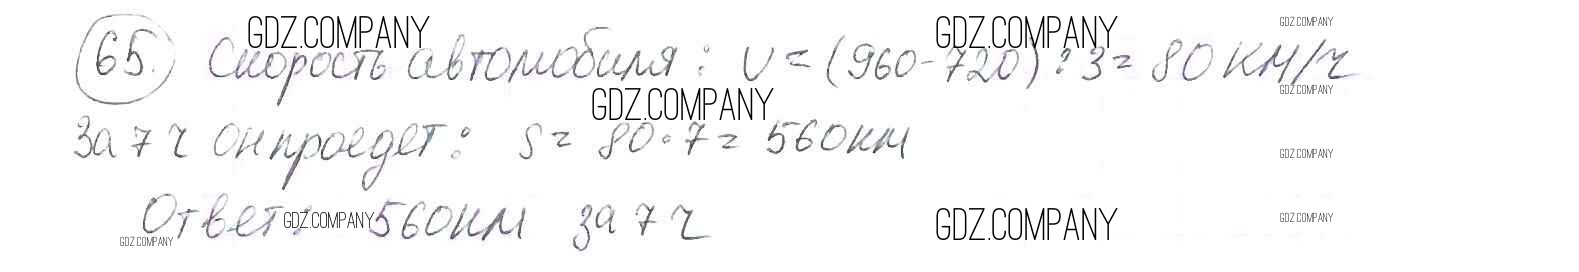 65. Скорость автомобиля: V = (960-720):3 = 80 км/ч
За 7 ч он проедет: S = 80·7 = 560 км
Ответ: 560 км за 7 ч
GDZ.COMPANY
GDZ.COMPANY
GDZ.COMPANY
GDZ.COMPANY
GDZ.COMPANY
GDZ.COMPANY
GDZ.COMPANY
GDZ.COMPANY
GDZ.COMPANY
GDZ.COMPANY